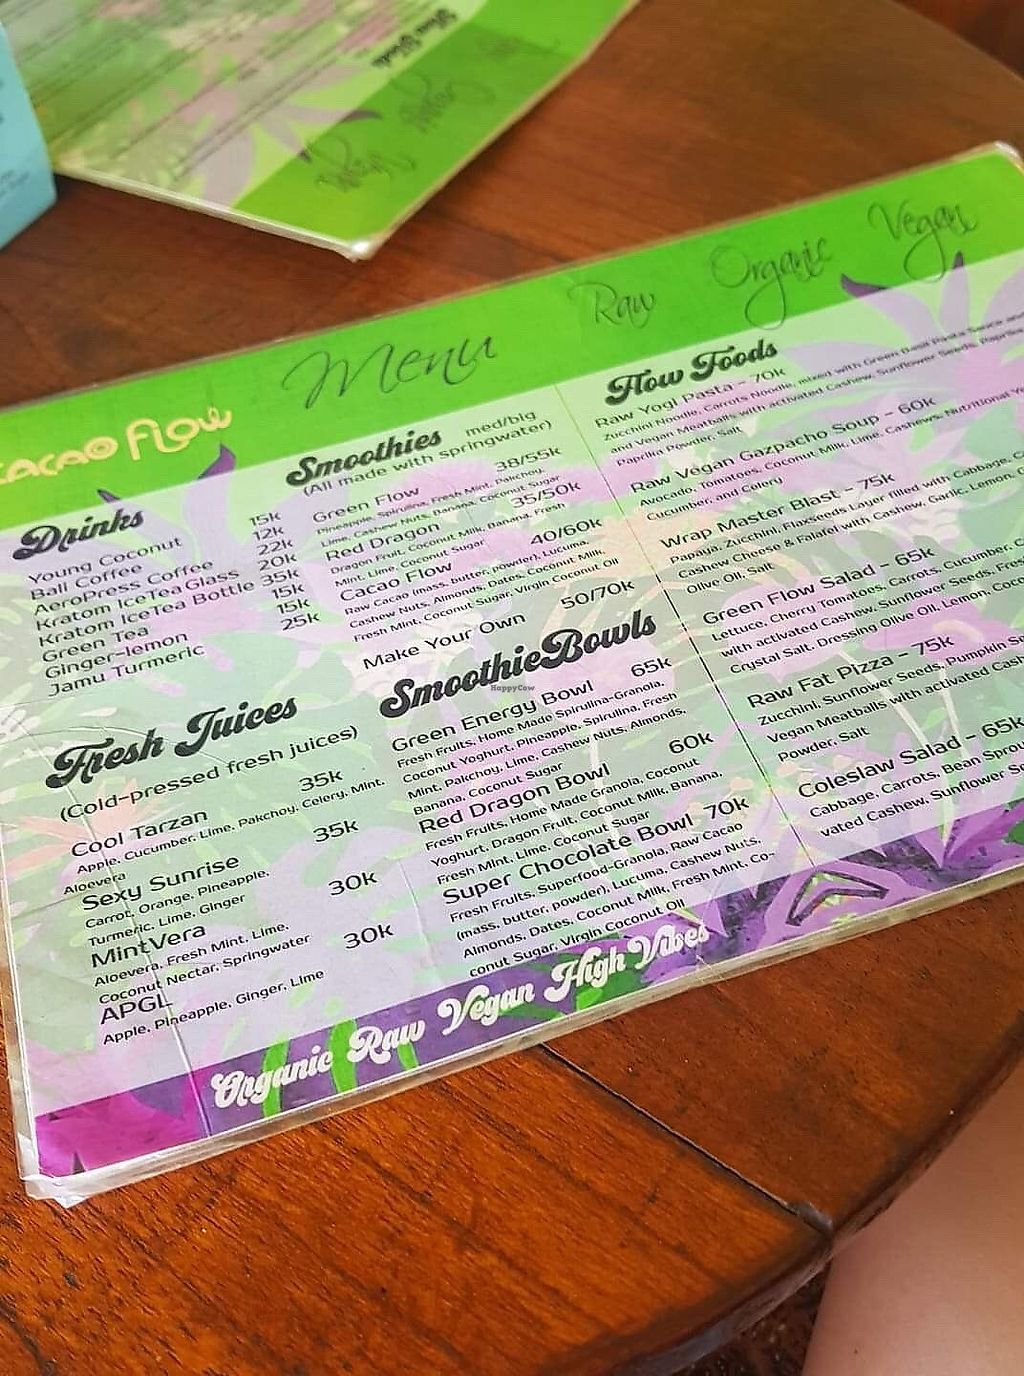 CACAO FLOW
Menu
Raw Organic Vegan
Drinks
Young Coconut 15k
Bali Coffee 12k
AeroPress Coffee 22k
Kratom IceTea Glass 20k
Kratom IceTea Bottle 35k
Green Tea 15k
Ginger-lemon 15k
Jamu Turmeric 25k
Fresh Juices
(Cold-pressed fresh juices)
Cool Tarzan 35k
Apple, Cucumber, Lime, Pakchoy, Celery, Mint,
Aloevera
Sexy Sunrise 35k
Carrot, Orange, Pineapple,
Turmeric, Lime, Ginger
MintVera 30k
Aloevera, Fresh Mint, Lime,
Coconut Nectar, Springwater
APGL 30k
Apple, Pineapple, Ginger, Lime
Smoothies med/big
(All made with springwater)
Green Flow 38/55k
Pineapple, Spirulina, Fresh Mint, Pakchoy,
Lime, Cashew Nuts, Banana, Coconut Sugar
Red Dragon 35/50k
Dragon Fruit, Coconut Milk, Banana, Fresh
Mint, Lime, Coconut Sugar
Cacao Flow 40/60k
Raw Cacao (mass, butter, powder), Lucuma,
Cashew Nuts, Almonds, Dates, Coconut Milk,
Fresh Mint, Coconut Sugar, Virgin Coconut Oil
Make Your Own 50/70k
SmoothieBowls
Green Energy Bowl 65k
Fresh Fruits, Home Made Spirulina-Granola,
Coconut Yoghurt, Pineapple, Spirulina, Fresh
Mint, Pakchoy, Lime, Cashew Nuts, Almonds,
Banana, Coconut Sugar
Red Dragon Bowl 60k
Fresh Fruits, Home Made Granola, Coconut
Yoghurt, Dragon Fruit, Coconut Milk, Banana,
Fresh Mint, Lime, Coconut Sugar
Super Chocolate Bowl 70k
Fresh Fruits, Superfood-Granola, Raw Cacao
(mass, butter, powder), Lucuma, Cashew Nuts,
Almonds, Dates, Coconut Milk, Fresh Mint, Co-
conut Sugar, Virgin Coconut Oil
Flow Foods
Raw Yogi Pasta - 70k
Zucchini Noodle, Carrots Noodle, mixed with Green Basil Pasta Sauce and
Vegan Meatballs with activated Cashew, Sunflower Seeds, Paprika
Paprika Powder, Salt
Raw Vegan Gazpacho Soup - 60k
Avocado, Tomatoes, Coconut Milk, Lime, Cashews, Nutritional
Cucumber, and Celery
Wrap Master Blast - 75k
Papaya, Zucchini, Flaxseeds Layer filled with Cabbage,
Cashew Cheese & Falafel with Cashew, Garlic, Lemon,
Olive Oil, Salt
Green Flow Salad - 65k
Lettuce, Cherry Tomatoes, Carrots, Cucumber,
with activated Cashew, Sunflower Seeds,
Crystal Salt, Dressing Olive Oil, Lemon,
Raw Fat Pizza - 75k
Zucchini, Sunflower Seeds, Pumpkin
Vegan Meatballs with activated
Powder, Salt
Coleslaw Salad - 65k
Cabbage, Carrots, Bean
vated Cashew, Sunflower
Organic Raw Vegan High Vibes
HappyCow